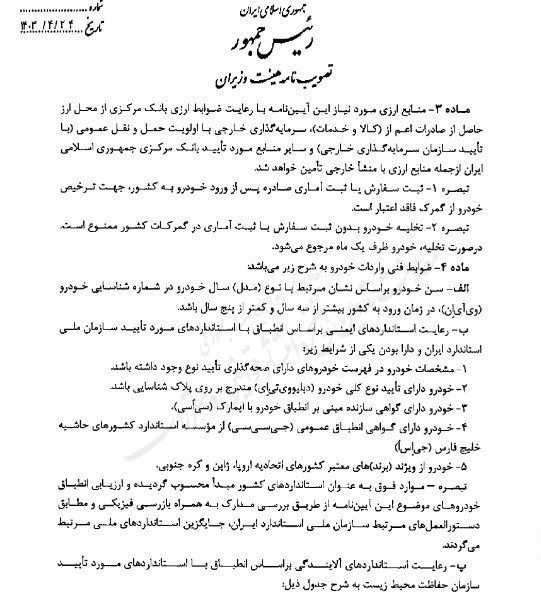 جمهوری اسلامی ایران
رئیس جمهور
تصویب نامه هیئت وزیران
شماره
تاریخ ۱۴۰۳/۴/۲۴
ماده ۳- منابع ارزی مورد نیاز این آیین‌نامه با رعایت ضوابط ارزی بانک مرکزی از محل ارز
حاصل از صادرات اعم از (کالا و خدمات)، سرمایه‌گذاری خارجی با اولویت حمل و نقل عمومی (با
تأیید سازمان سرمایه‌گذاری خارجی) و سایر منابع مورد تأیید بانک مرکزی جمهوری اسلامی
ایران ازجمله منابع ارزی با منشأ خارجی تأمین خواهد شد.
تبصره ۱- ثبت سفارش یا ثبت آماری صادره پس از ورود خودرو به کشور، جهت ترخیص
خودرو از گمرک فاقد اعتبار است.
تبصره ۲- تخلیه خودرو بدون ثبت سفارش یا ثبت آماری در گمرکات کشور ممنوع است.
درصورت تخلیه، خودرو ظرف یک ماه مرجوع می‌شود.
ماده ۴- ضوابط فنی واردات خودرو به شرح زیر می‌باشد:
الف- سن خودرو براساس نشان مرتبط با نوع (مدل) سال خودرو در شماره شناسایی خودرو
(وی‌آی‌ان)، در زمان ورود به کشور بیشتر از سه سال و کمتر از پنج سال باشد.
ب- رعایت استانداردهای ایمنی براساس انطباق با استانداردهای مورد تأیید سازمان ملی
استاندارد ایران و دارا بودن یکی از شرایط زیر:
۱- مشخصات خودرو در فهرست خودروهای دارای صحه‌گذاری تأیید نوع وجود داشته باشد.
۲- خودرو دارای تأیید نوع کلی خودرو (دبلیووی‌تی‌ای) مندرج بر روی پلاک شناسایی باشد.
۳- خودرو دارای گواهی سازنده مبنی بر انطباق خودرو با ایمارک (سی‌اُسی).
۴- خودرو دارای گواهی انطباق عمومی (جی‌سی‌سی) از مؤسسه استاندارد کشورهای حاشیه
خلیج فارس (جی‌اس‌اُ)
۵- خودرو از ویژند (برند)های معتبر کشورهای اتحادیه اروپا، ژاپن و کره جنوبی.
تبصره – موارد فوق به عنوان استانداردهای کشور مبدأ محسوب گردیده و ارزیابی انطباق
خودروهای موضوع این آیین‌نامه از طریق بررسی مدارک به همراه بازرسی فیزیکی و مطابق
دستورالعمل‌های مرتبط سازمان ملی استاندارد ایران، جایگزین استانداردهای ملی مرتبط
می‌گردند.
پ- رعایت استانداردهای آلایندگی براساس انطباق با استانداردهای مورد تأیید
سازمان حفاظت محیط زیست به شرح جدول ذیل: